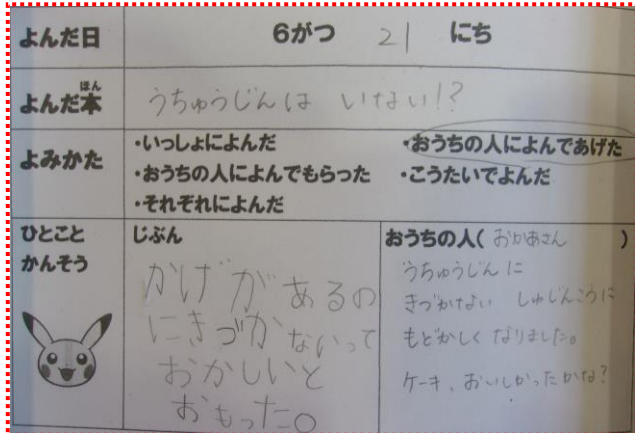 よんだ日 6がつ 21 にち
ほん
よんだ本 うちゅうじんは いない!?
よみかた
・いっしょによんだ ・おうちの人によんであげた
・おうちの人によんでもらった ・こうたいでよんだ
・それぞれによんだ
ひとこと
かんそう
じぶん
かげがあるの
にきづかないって
おかしいと
おもった。
おうちの人(おかあさん)
うちゅうじんに
きづかない しゅじんこうに
もどかしく なりました。
ケーキ、おいしかったかな?